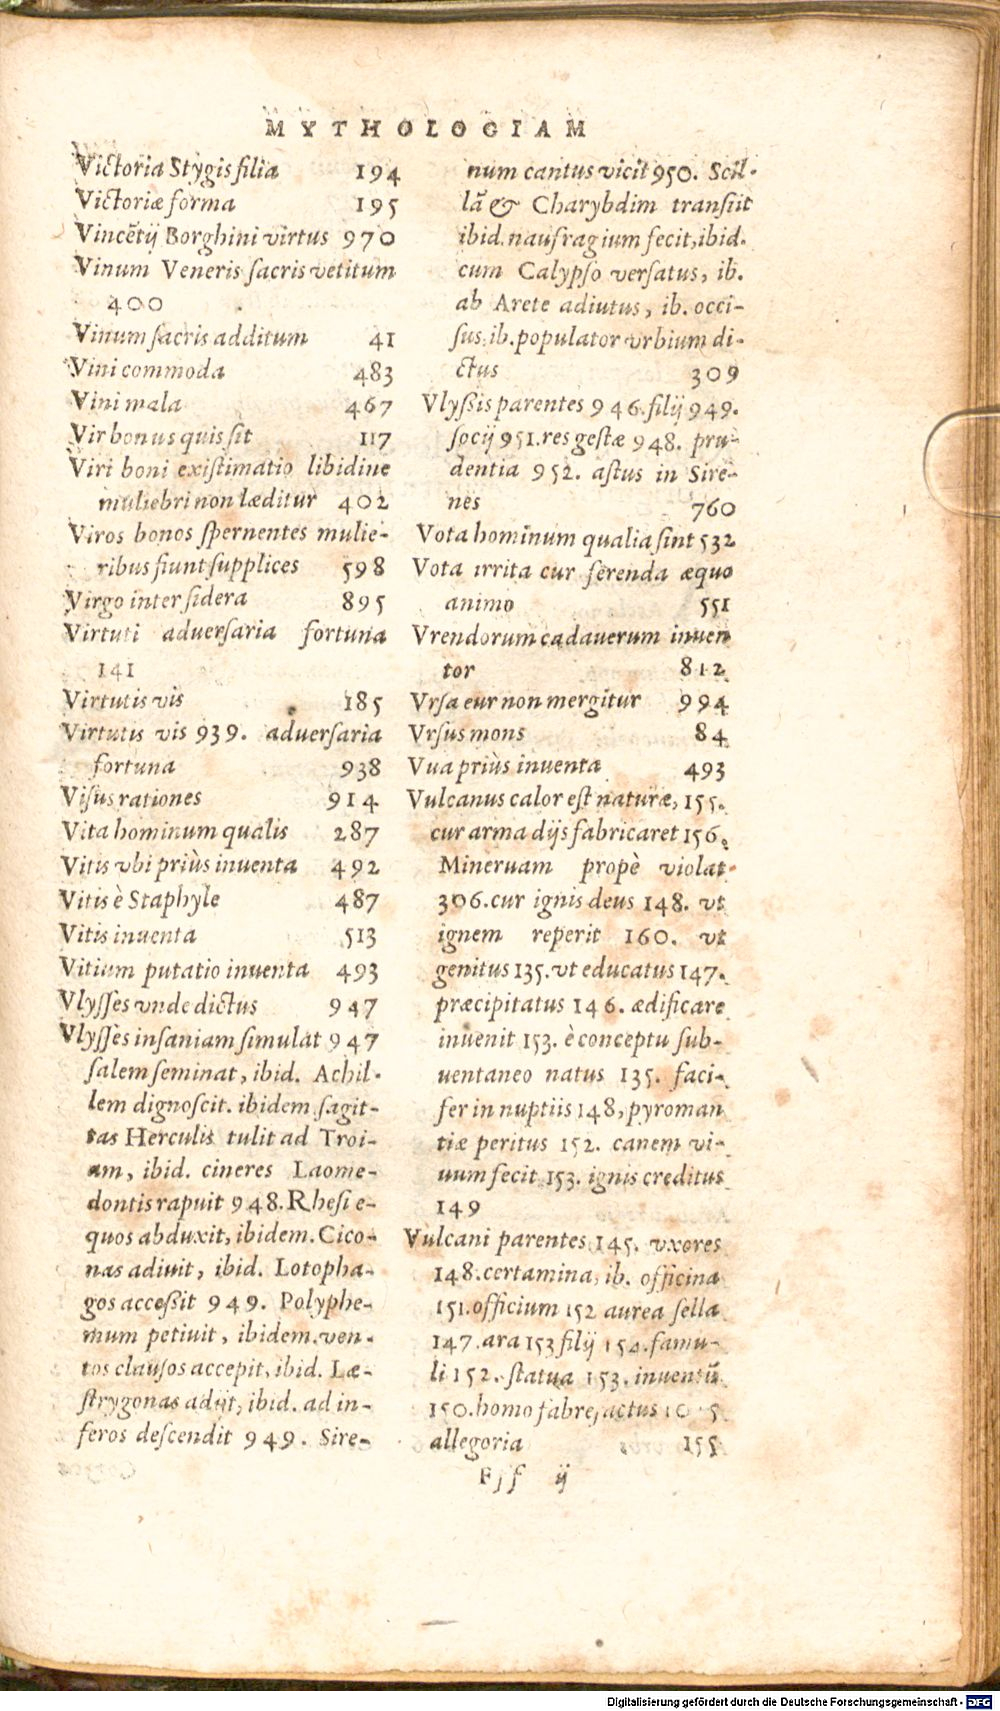 MYTHOLOGIAM
Victoria Stygis filia 194
Victoriæ forma 195
Vincẽtij Borghini virtus 970
Vinum Veneris sacris vetitum
400
Vinum sacris additum 41
Vini commoda 483
Vini mala 467
Vir bonus quis sit 117
Viri boni existimatio libidine
muliebri non læditur 402
Viros bonos spernentes mulie-
ribus fiunt supplices 598
Virgo inter sidera 895
Virtuti adversaria fortuna
141
Virtutis vis 185
Virtutis vis 939. adversaria
fortuna 938
Visus rationes 914
Vita hominum qualis 287
Vitis vbi priùs inventa 492
Vitis è Staphyle 487
Vitis inventa 513
Vitium putatio inventa 493
Vlysses vnde dictus 947
Vlysses insaniam simulat 947
salem seminat, ibid. Achil-
lem dignoscit. ibidem sagit-
tas Herculis tulit ad Troi-
am, ibid. cineres Laome-
dontis rapuit 948. Rhesi e-
quos abduxit, ibidem. Cico-
nas adiuit, ibid. Lotopha-
gos accessit 949. Polyphe-
mum petiuit, ibidem. ven-
tos clausos accepit, ibid. Læ-
strygonas adijt, ibid. ad in-
feros descendit 949. Sire-
num cantus vicit 950. Scil-
lã & Charybdim transiit
ibid. naufragium fecit, ibid.
cum Calypso versatus, ib.
ab Arete adiutus, ib. occi-
sus. ib. populator vrbium di-
ctus 309
Vlyssis parentes 946. filij 949.
socij 951. res gestæ 948. pru-
dentia 952. astus in Sire-
nes 760
Vota hominum qualia sint 532
Vota irrita cur ferenda æquo
animo 551
Vrendorum cadauerum inuen
tor 812
Vrsa eur non mergitur 994
Vrsus mons 84
Vua priùs inventa 493
Vulcanus calor est naturæ, 155.
cur arma dijs fabricaret 156.
Mineruam propè violat
306. cur ignis deus 148. vt
ignem reperit 160. vt
genitus 135. vt educatus 147.
præcipitatus 146. ædificare
inuenit 153. è conceptu sub-
ventaneo natus 135. faci-
fer in nuptiis 148, pyroman
tiæ peritus 152. canem vi-
uum fecit 153. ignis creditus
149
Vulcani parentes 145. vxores
148. certamina, ib. officina
151. officium 152 aurea sella
147. ara 153 filij 154. famu-
li 152. statua 153. inuentũ
150. homo fabrefactus
allegoria 155
Fff ij
Digitalisierung gefördert durch die Deutsche Forschungsgemeinschaft - DFG